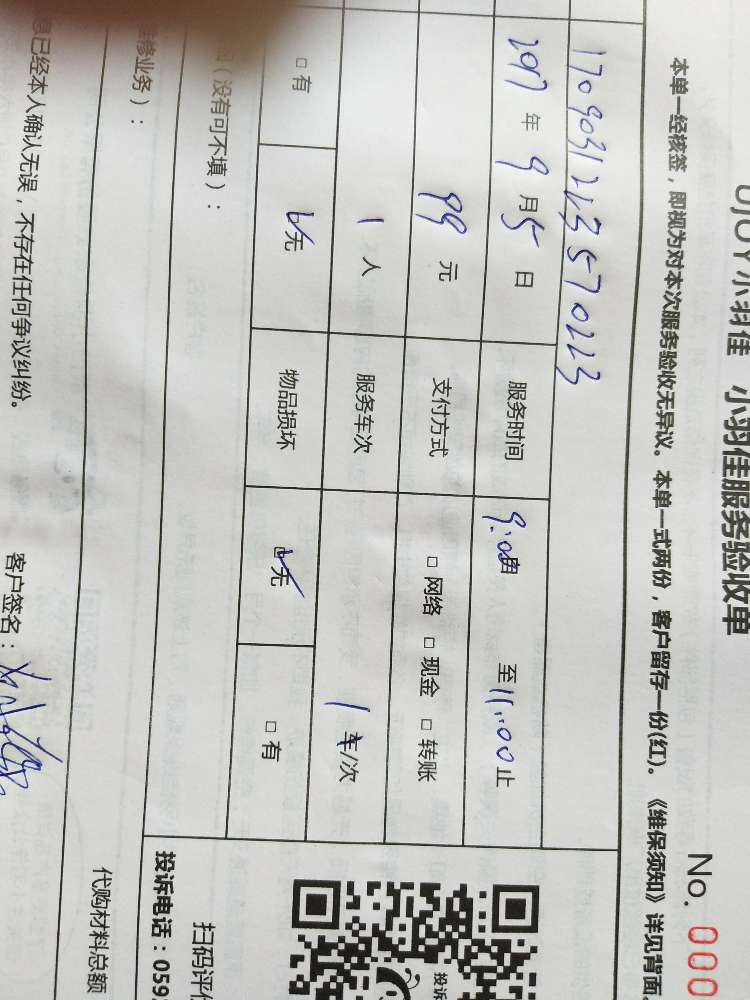 UJOY小羽佳 小羽佳服务验收单
No. 000
本单一经核签，即视为对本次服务验收无异议。本单一式两份，客户留存一份(红)。《维保须知》详见背面
1709031213570223
2017 年 9 月 5 日 服务时间 9:00由 至 11:00 止
99 元 支付方式 □ 网络 □ 现金 □ 转账
1 人 服务车次 1 车/次
□ 有 ☑无 物品损坏 ☑无 □ 有
（没有可不填）：
修业务）：
息已经本人确认无误，不存在任何争议纠纷。
客户签名：
投诉
扫码评价
投诉电话：059
代购材料总额